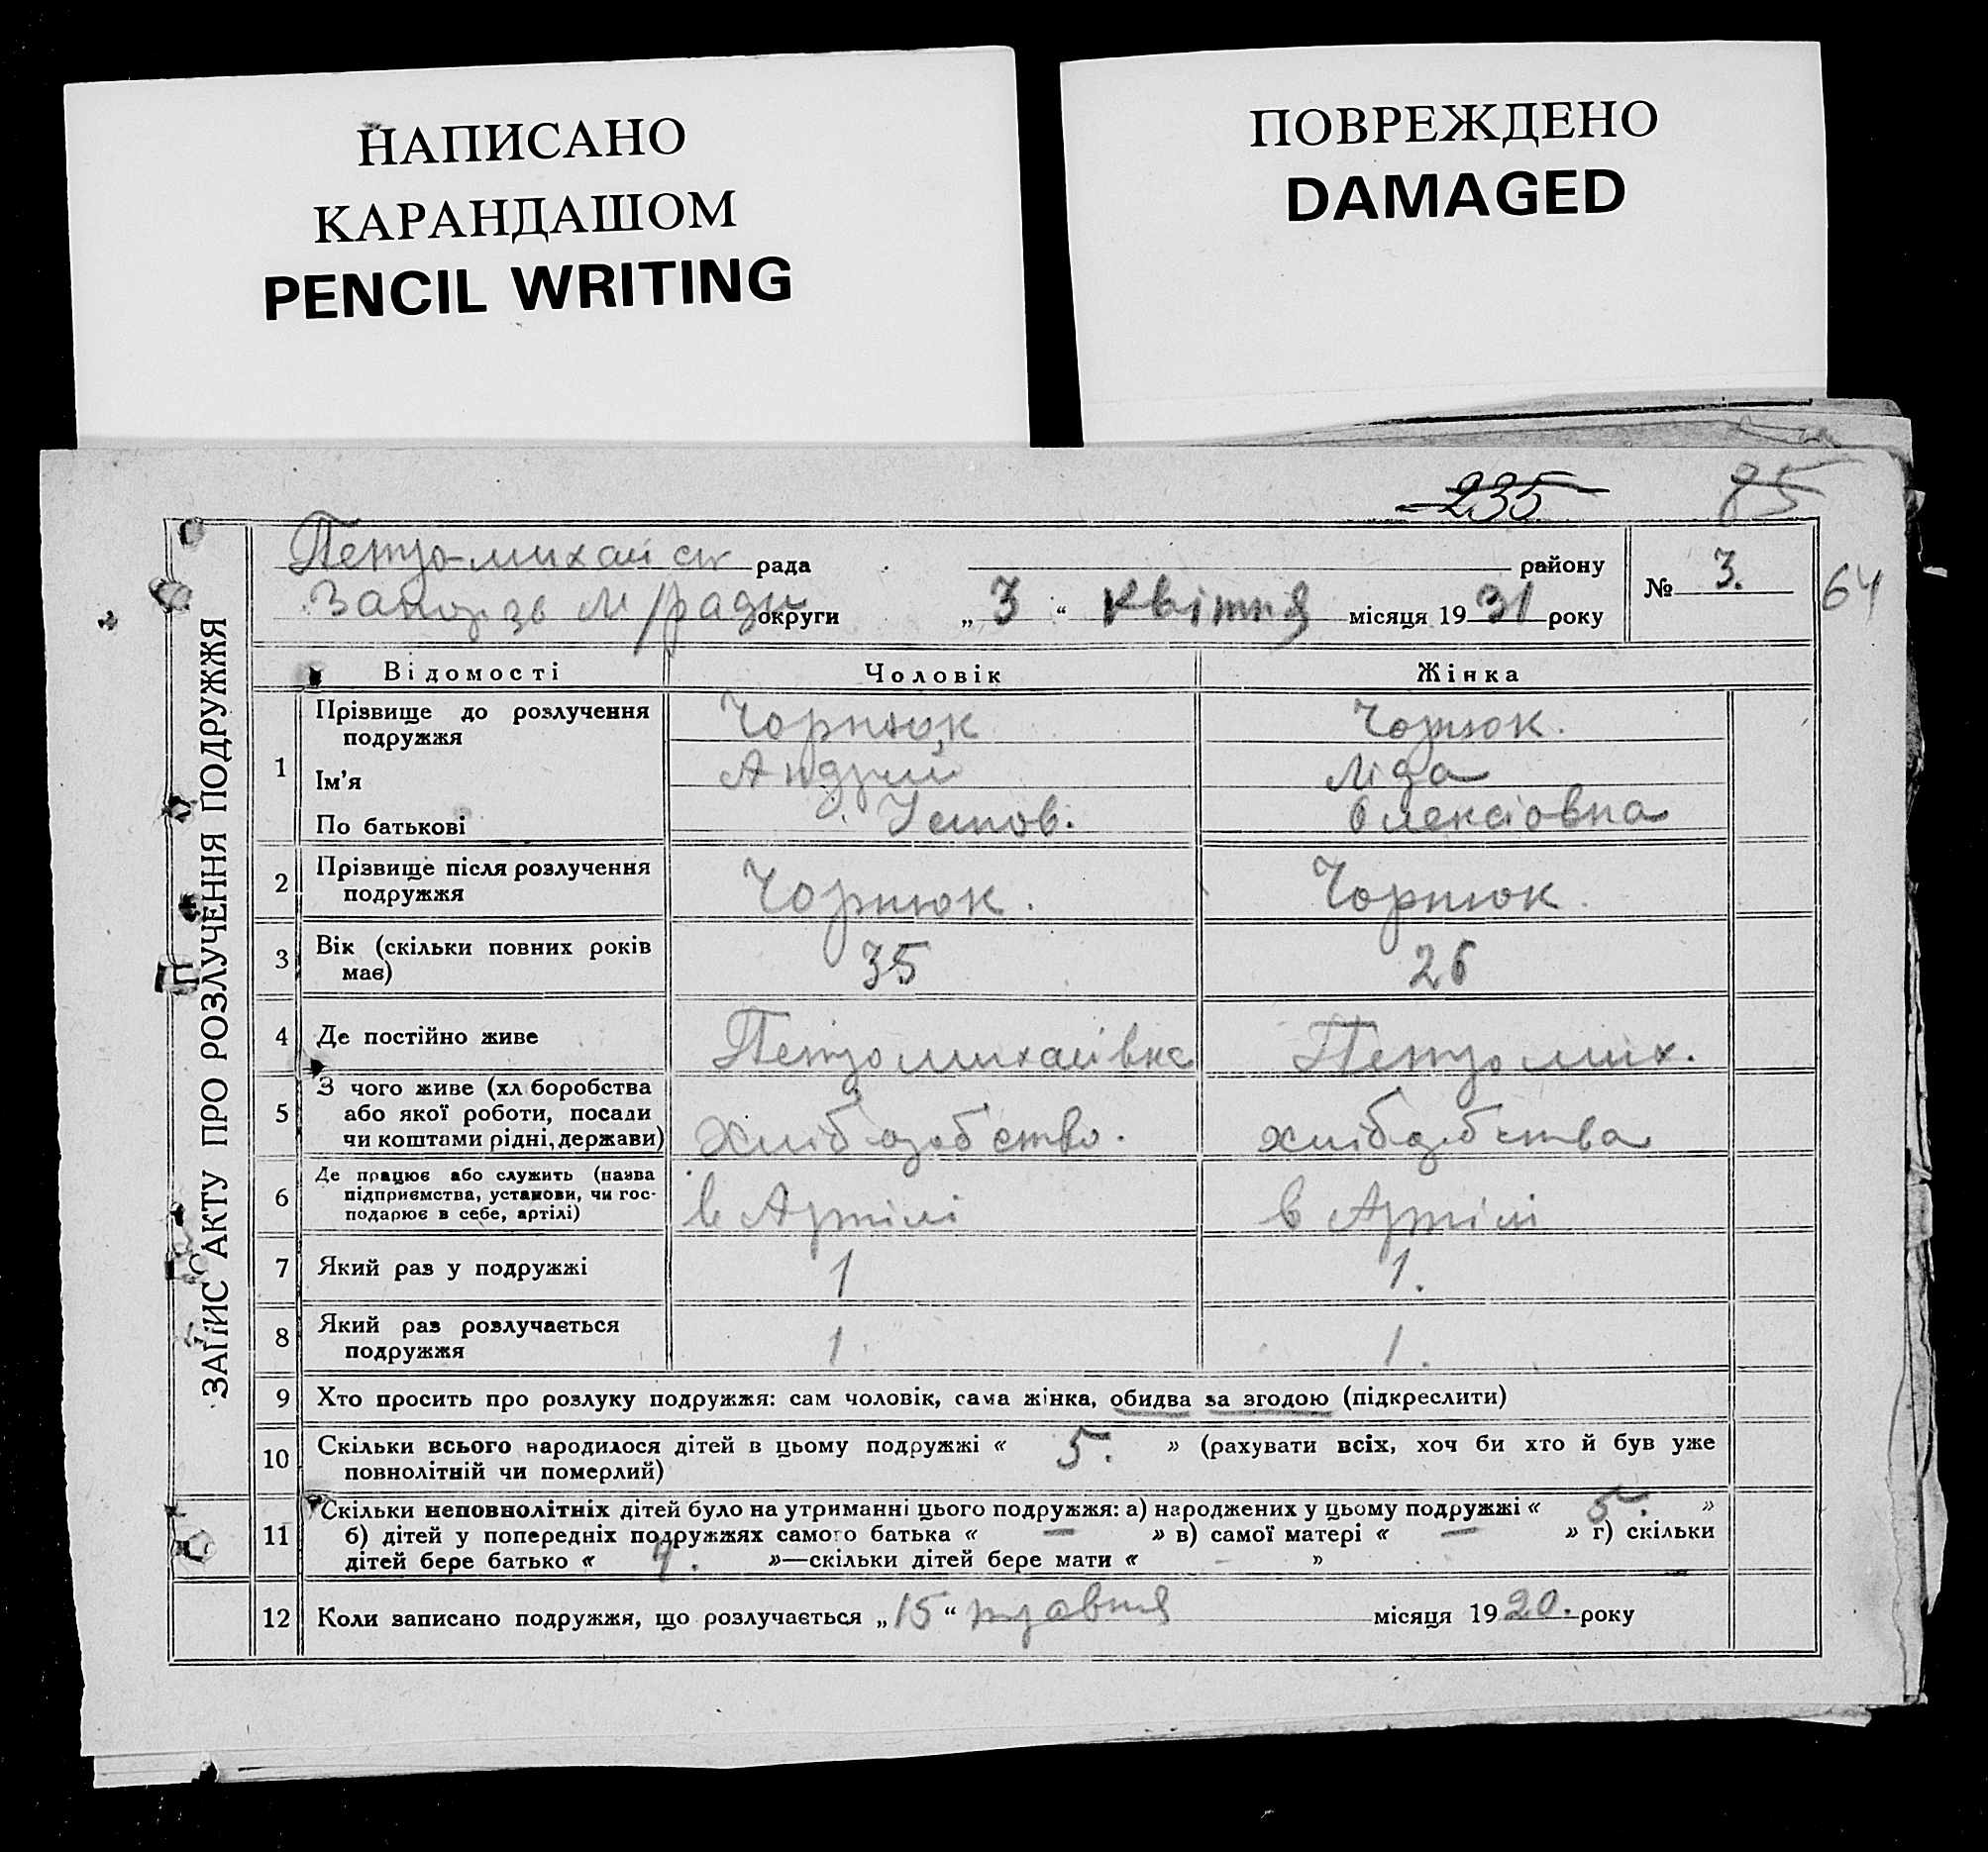 НАПИСАНО
КАРАНДАШОМ
PENCIL WRITING
ПОВРЕЖДЕНО
DAMAGED
235 85
ЗАПИС АКТУ ПРО РОЗЛУЧЕННЯ ПОДРУЖЖЯ
Петро-михайськ рада району
М/ради округи „ 3 “ квітня місяця 19 31 року
№ 3. 64
Відомості Чоловік Жінка
1 Прізвище до розлучення подружжя Чорнюк Чорнюк.
Ім'я Андрій Ліда
По батькові Устов. Олексіовна
2 Прізвище після розлучення подружжя Чорнюк. Чорнюк.
3 Вік (скільки повних років має) 35 26
4 Де постійно живе Петромихаівка Петромих.
5 З чого живе (хл боробства або якої роботи, посади чи коштами рідні, держави)
6 Де працює або служить (назва підприємства, установи, чи господарює в себе, артілі) в Артілі в Артілі
7 Який раз у подружжі 1 1.
8 Який раз розлучається подружжя 1 1.
9 Хто просить про розлуку подружжя: сам чоловік, сама жінка, обидва за згодою (підкреслити)
10 Скільки всього народилося дітей в цьому подружжі « 5. » (рахувати всіх, хоч би хто й був уже
повнолітній чи померлий)
11 Скільки неповнолітніх дітей було на утриманні цього подружжя: а) народжених у цьому подружжі « 5. »
б) дітей у попередніх подружжях самого батька « — » в) самої матері « — » г) скільки
дітей бере батько « 4. »—скільки дітей бере мати « - »
12 Коли записано подружжя, що розлучається „ 15 “ травня місяця 19 20. року